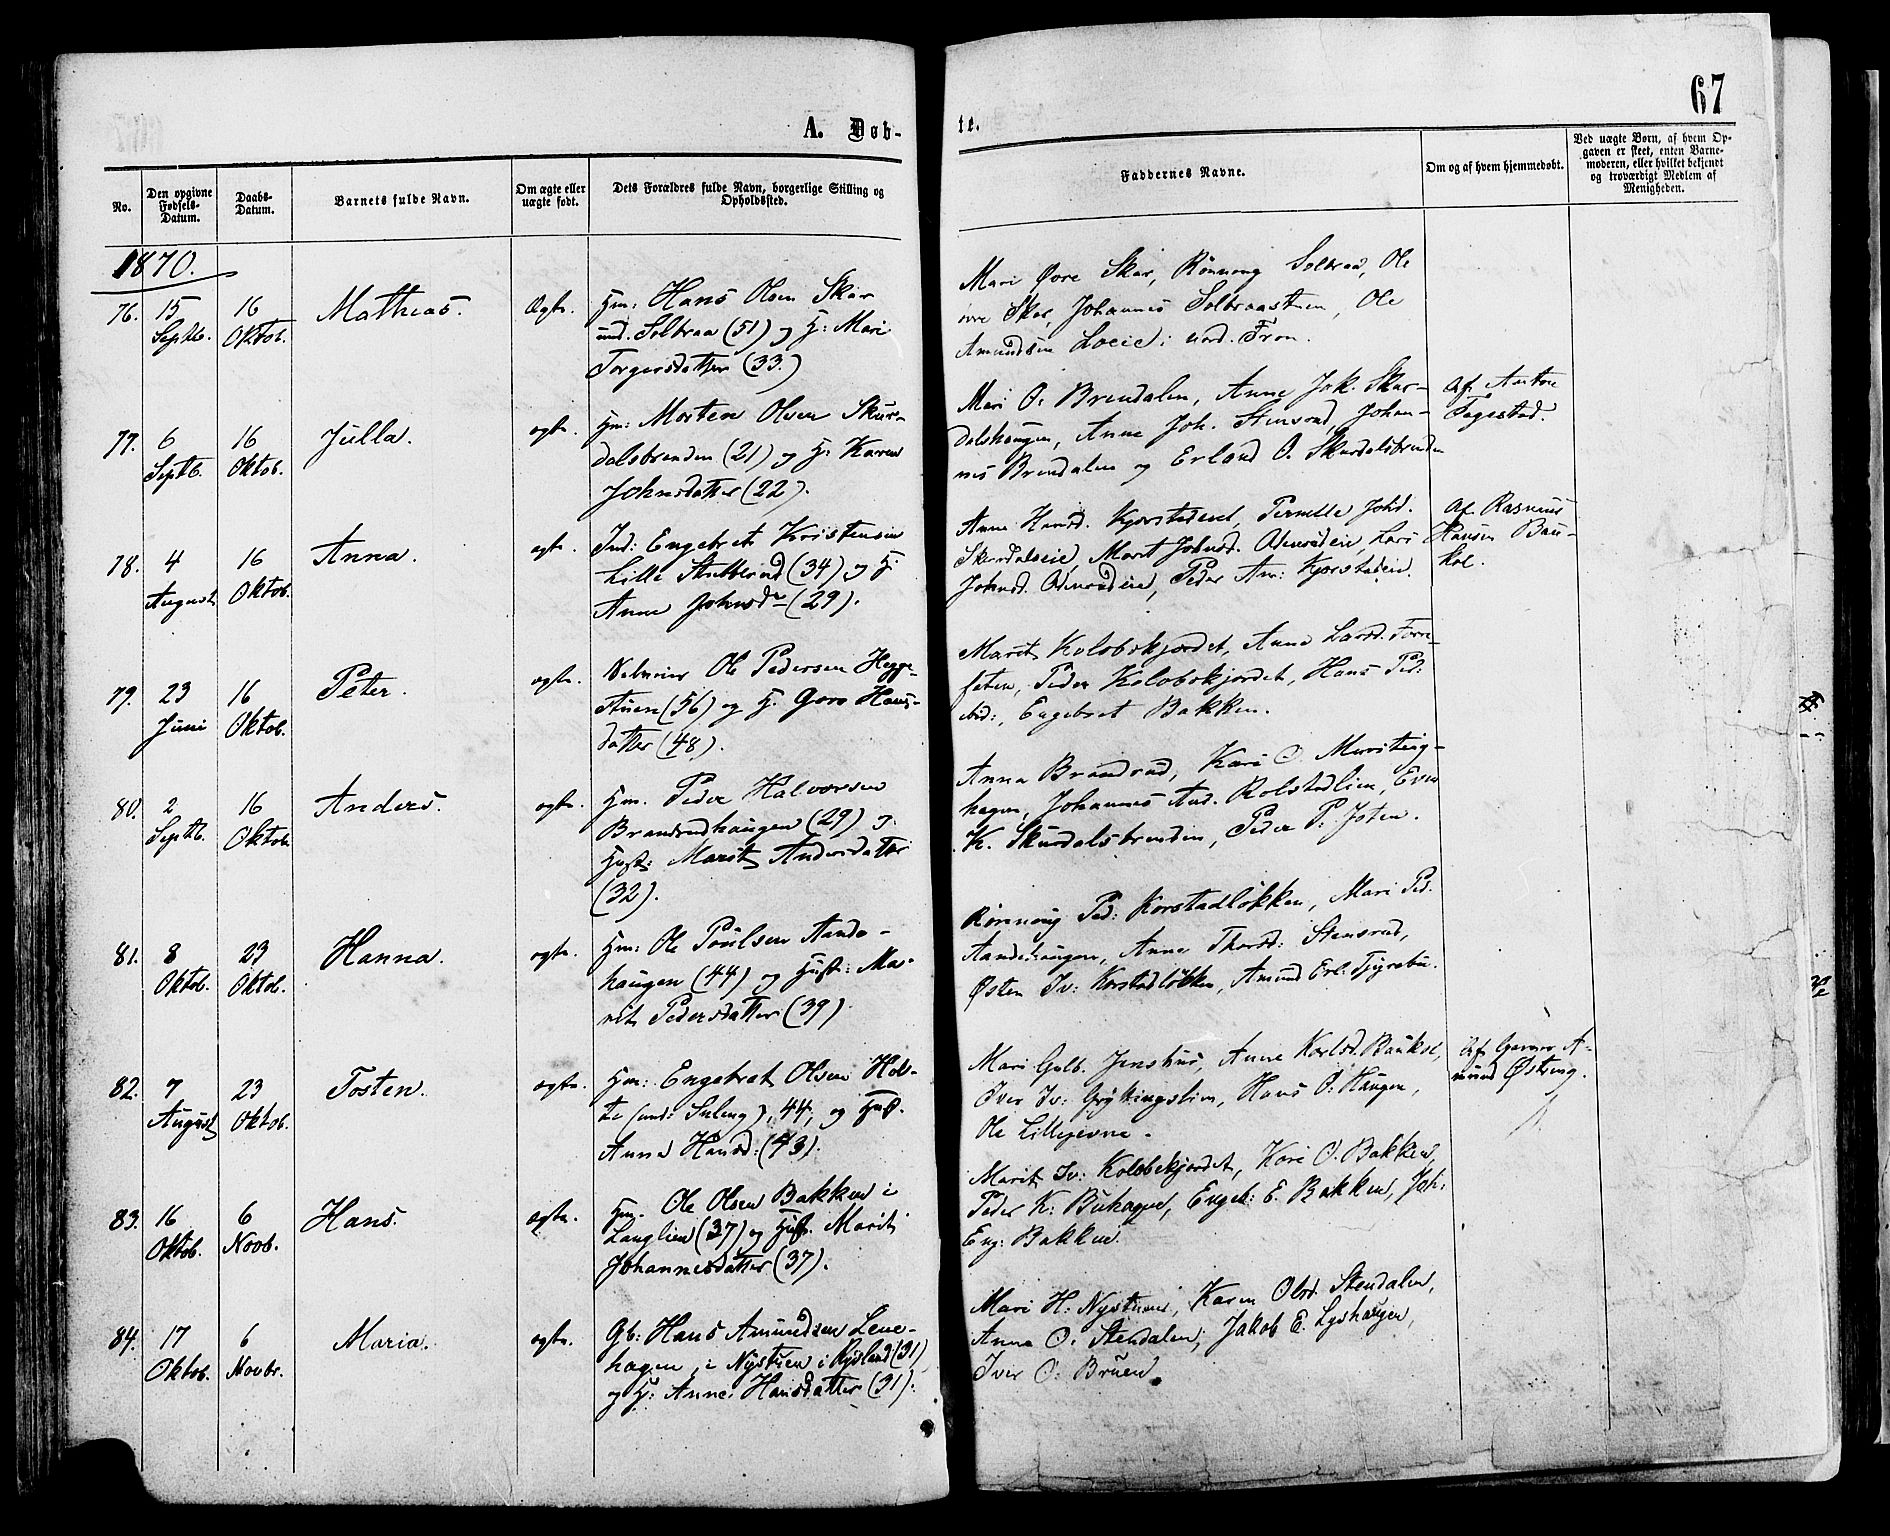 67
A. Døb-
te.
No.
Den opgivne
Fødsels-
Datum.
Daabs-
Datum.
Barnets fulde Navn.
Om ægte eller
uægte født.
Dets Forældres fulde Navn, borgerlige Stilling og
Opholdssted.
Faddernes Navne.
Om og af hvem hjemmedøbt.
Ved uægte Børn, af hvem Op-
gaven er skeet, enten Barne-
moderen, eller hvilket bekjendt
og troværdigt Medlem af
Menigheden.
1870.
76.
15
Septb.
16
Oktob.
Mathias.
Ægte.
Hm: Hans Olsen Skar
und. Solbraa (51) og H: Mari
Torgersdatter (33.)
Mari Øvre Skar, Rønnong Solbraa, Ole
øvre Skar, Johannes Solbraastuen, Ole
Amundsen Loeie i nord. Fron.
77.
6
Septb.
16
Oktob.
Julla.
ægte.
Hm: Morten Olsen Skur-
dalsbrenden (21) og H: Karen
Johnsdatter (22).
Mari O. Brendalen, Anne Joh. Skur-
dalshaugen, Anne Joh. Stensrud, Johan-
nes Brendalen og Erland O. Skurdalsbrenden
Af Anton
Fagestad.
78.
4
August
16
Oktob.
Anna.
ægte.
Ind: Engebret Kristensen
Lille Stubberud (34) og H:
Anne Johnsdr (29).
Anne Hansd. Kjorstadeiet, Pernille Johd.
Skurdalseie, Marit Johnsd. Odenrudeie, Lars
Johnsd. Odenrudeie, Peder An: Kjorstadeie.
Af Rasmus
Hansen Bau-
kol.
79.
23
Juni
16
Oktob.
Peter.
ægte.
Selveier Ole Pedersen Hegge-
stuen (56) og H. Goro Hans-
datter (48).
Marit Kolobekjordet, Anne Larsd. Forr-
foten, Peder Kolobekjordet, Hans Ped:
ibid:, Engebret Bakken.
80.
2
Septb.
16
Oktob.
Anders.
ægte.
Hm. Peder Halvorsen
Brandrudhaugen (29) og
Hust: Marit Andersdatter
(32).
Anna Brandrud, Kari O. Mursteig-
hagen, Johannes And. Rolstadlien, Even
K. Skurdalsbrenden, Peder P. Joten.
81.
8
Oktob.
23
Oktob.
Hanna.
ægte.
Hm: Ole Poulsen Aande-
haugen (44) og Hust: Ma-
rit Pedersdatter (39)
Rønnoug Ped: Korstadløkken, Mari Ped.
Aandehaugen, Anne Thorsd: Stensrud,
Østen Iv: Korstadløkken, Amund Erl. Tjyrebu.
82.
7
August
23
Oktob.
Tosten.
ægte.
Hm: Engebret Olsen Hol-
te (und: Suleng), 44, og Hust.
Anne Hansd: (43).
Mari Gulb. Jenshus, Anne Karlsd. Baukol,
Iver Iv: Grytingslien, Hans O. Haugen,
Ole Lillejevne.
Af Garver A-
mund Østeng.
83.
16
Oktob.
6
Novb.
Hans.
ægte.
Hm. Ole Olsen Bakken i
Langlien (37) og Hust. Marit
Johannesdatter (37).
Marit Iv: Kolobekjordet, Kari O. Bakken,
Peder K. Buhagen, Engeb: E. Bakken, Joh:
Eng: Bakken.
84.
17
Oktob.
6
Novbr.
Maria.
ægte.
Gb: Hans Amundsen Lene-
hagen, i Nystuen i Ryslund (31)
og H: Anne Hansdatter (31).
Mari H. Nystuen, Karen Olsd. Stendalen,
Anne O. Stendalen, Jakob E. Lyshaugen,
Iver O. Bruen.